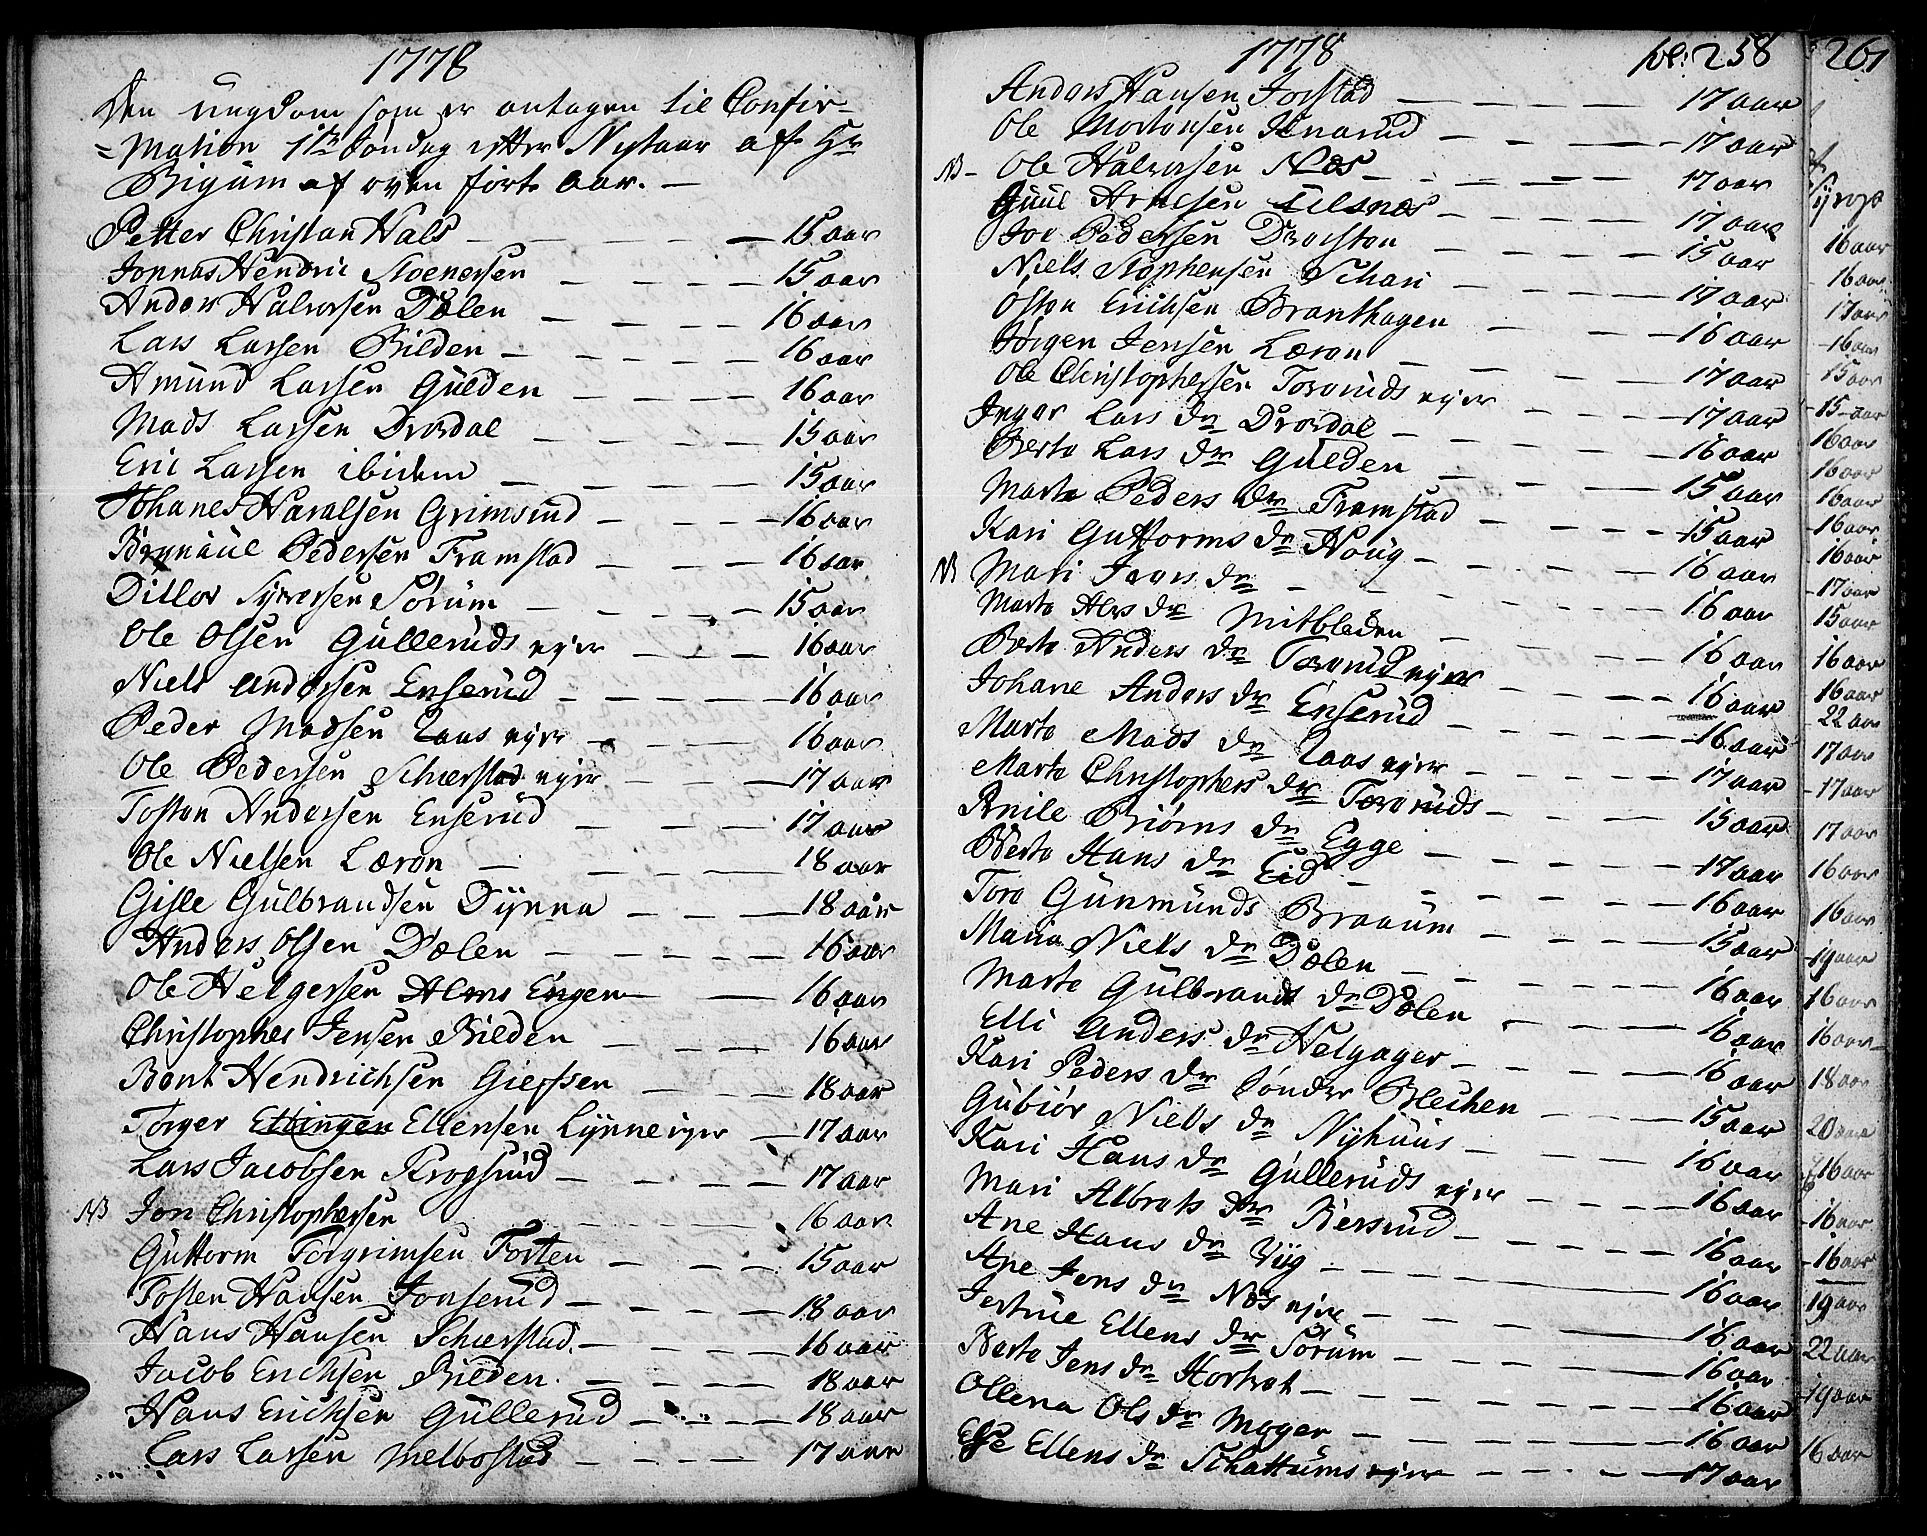 1778
Den ungdom som er antagen til Confir=
=mation 1te Søndag efter Nytaar af Hr
Bigum af oven førte Aar. —
Petter Christian Hals — 15 aar
Jonnas Hendric Stoenersen — 15 aar
Anders Halvorsen Dælen — 16 aar
Lars Larsen Bilden — 16 aar
Amund Larsen Gulden — 16 aar
Mads Larsen Dvordal — 15 aar
Eric Larsen ibidem — 15 aar
Johanes Haralsen Grimsrud — 16 aar
Bryniul Pedersen Framstad — 16 aar
Ditlov Syversen Sørum — 15 aar
Ole Olsen Gulleruds ejer — 16 aar
Niels Andersen Enserud — 16 aar
Peder Madsen Raas ejer — 16 aar
Ole Pedersen Schiærstad ejer — 17 aar
Tosten Andersen Enserud — 17 aar
Ole Nielsen Læren — 18 aar
Gisle Gulbrandsen Dynna — 18 aar
Anders Olsen Dælen — 16 aar
Ole Helgersen Alms Engen — 16 aar
Christopher Jensen Bilden — 16 aar
Bent Hendrichsen Gieffsen — 18 aar
Torger Ellensen Lynne ejer — 17 aar
Lars Jacobsen Krogsrud — 17 aar
NB Jon Christophersen — 16 aar
Guttorm Torgrimsen Forten — 15 aar
Tosten Hansen Jonserud — 18 aar
Hans Hansen Schiærstad — 16 aar
Jacob Erichsen Bilden — 18 aar
Hans Erichsen Gullerud — 18 aar
Lars Larsen Melbostad — 17 aar
1778 pag: 258
Anders Hansen Jorstad — 17 aar
Ole Mortensen Knarud — 17 aar
NB — Ole Halvorsen Næs — 17 aar
Guul Arnesen Ulsnæs — 17 aar
Joe Pedersen — 15 aar
Niels Stephensen Schari — 17 aar
Osten Erichsen Branthagen — 16 aar
Jørgen Jensen Læren — 17 aar
Ole Christophersen Toreruds ejer — 17 aar
Inger Lars dr Dvordal — 16 aar
Berte Lars dr Gulden — 15 aar
Marte Peders dr Framstad — 15 aar
Kari Guttorms dr Houg — 16 aar
NB Mari Ivers dr — 16 aar
Marte dr Mitbleden — 16 aar
Berte Anders dr Torerud ejer — 16 aar
Johane Anders dr Enserud — 16 aar
Marte Mads dr Raas ejer — 17 aar
Marte Christophers dr Toreruds — 15 aar
Anders dr Helgager — 16 aar
Berte Hans dr Eid — 16 aar
Tore Gunmunds Braaum — 15 aar
Maria Niels dr Dælen — 16 aar
Marte Gulbrands dr Dælen — 16 aar
Kari Peders dr Sønder Blechen — 15 aar
Gubiør Niels dr Nyhuus — 16 aar
Kari Hans dr Gulleruds ejer — 16 aar
Mari Albrets dr Biersrud — 16 aar
Ane Hans dr — 16 aar
Ane Jens dr Næs ejer — 16 aar
Jertrue Ellens dr Sørum — 16 aar
Berte Jens dr — 16 aar
Ollena Ols dr Moger — 16 aar
Else Ellens dr Schattums ejer — 17 aar
261
16 aar
16 aar
17 aar
16 aar
15 aar
15 aar
16 aar
16 aar
16 aar
16 aar
16 aar
17 aar
15 aar
16 aar
16 aar
22 aar
17 aar
17 aar
17 aar
16 aar
16 aar
19 aar
16 aar
16 aar
18 aar
20 aar
16 aar
16 aar
16 aar
19 aar
22 aar
19 aar
16 aar